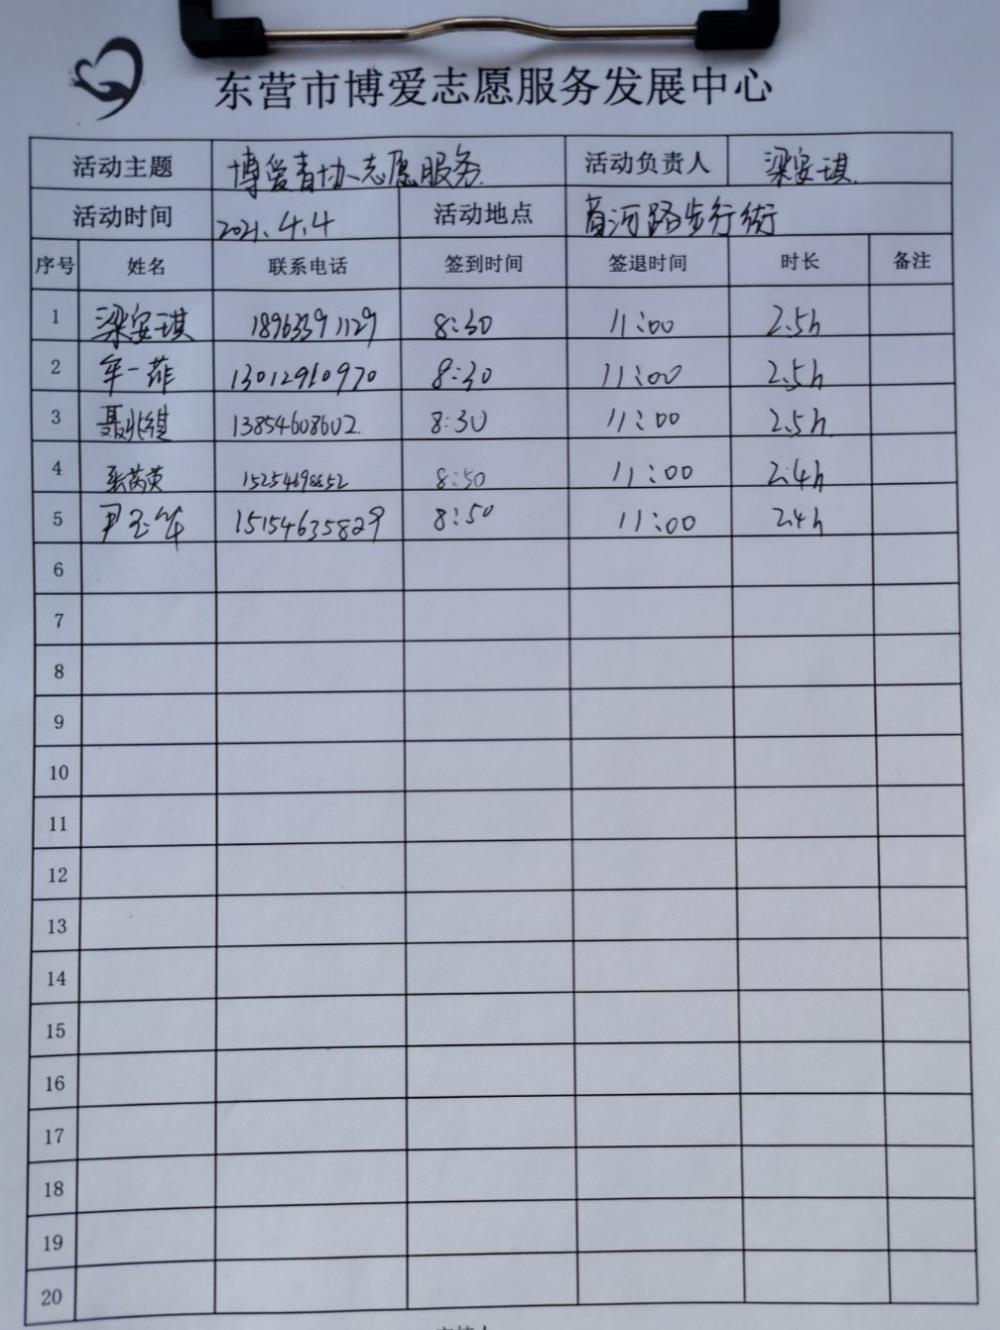 东营市博爱志愿服务发展中心
活动主题 博爱青协志愿服务 活动负责人 梁安琪
活动时间 2021.4.4 活动地点 商河路步行街
序号 姓名 联系电话 签到时间 签退时间 时长 备注
1 梁安琪 18963391129 8:30 11:00 2.5h
2 牟一菲 13012910970 8:30 11:00 2.5h
3 聂兆继 13854608602 8:30 11:00 2.5h
4 张芮英 8:50 11:00 2.4h
5 尹玉华 15154635829 8:50 11:00 2.4h
6
7
8
9
10
11
12
13
14
15
16
17
18
19
20